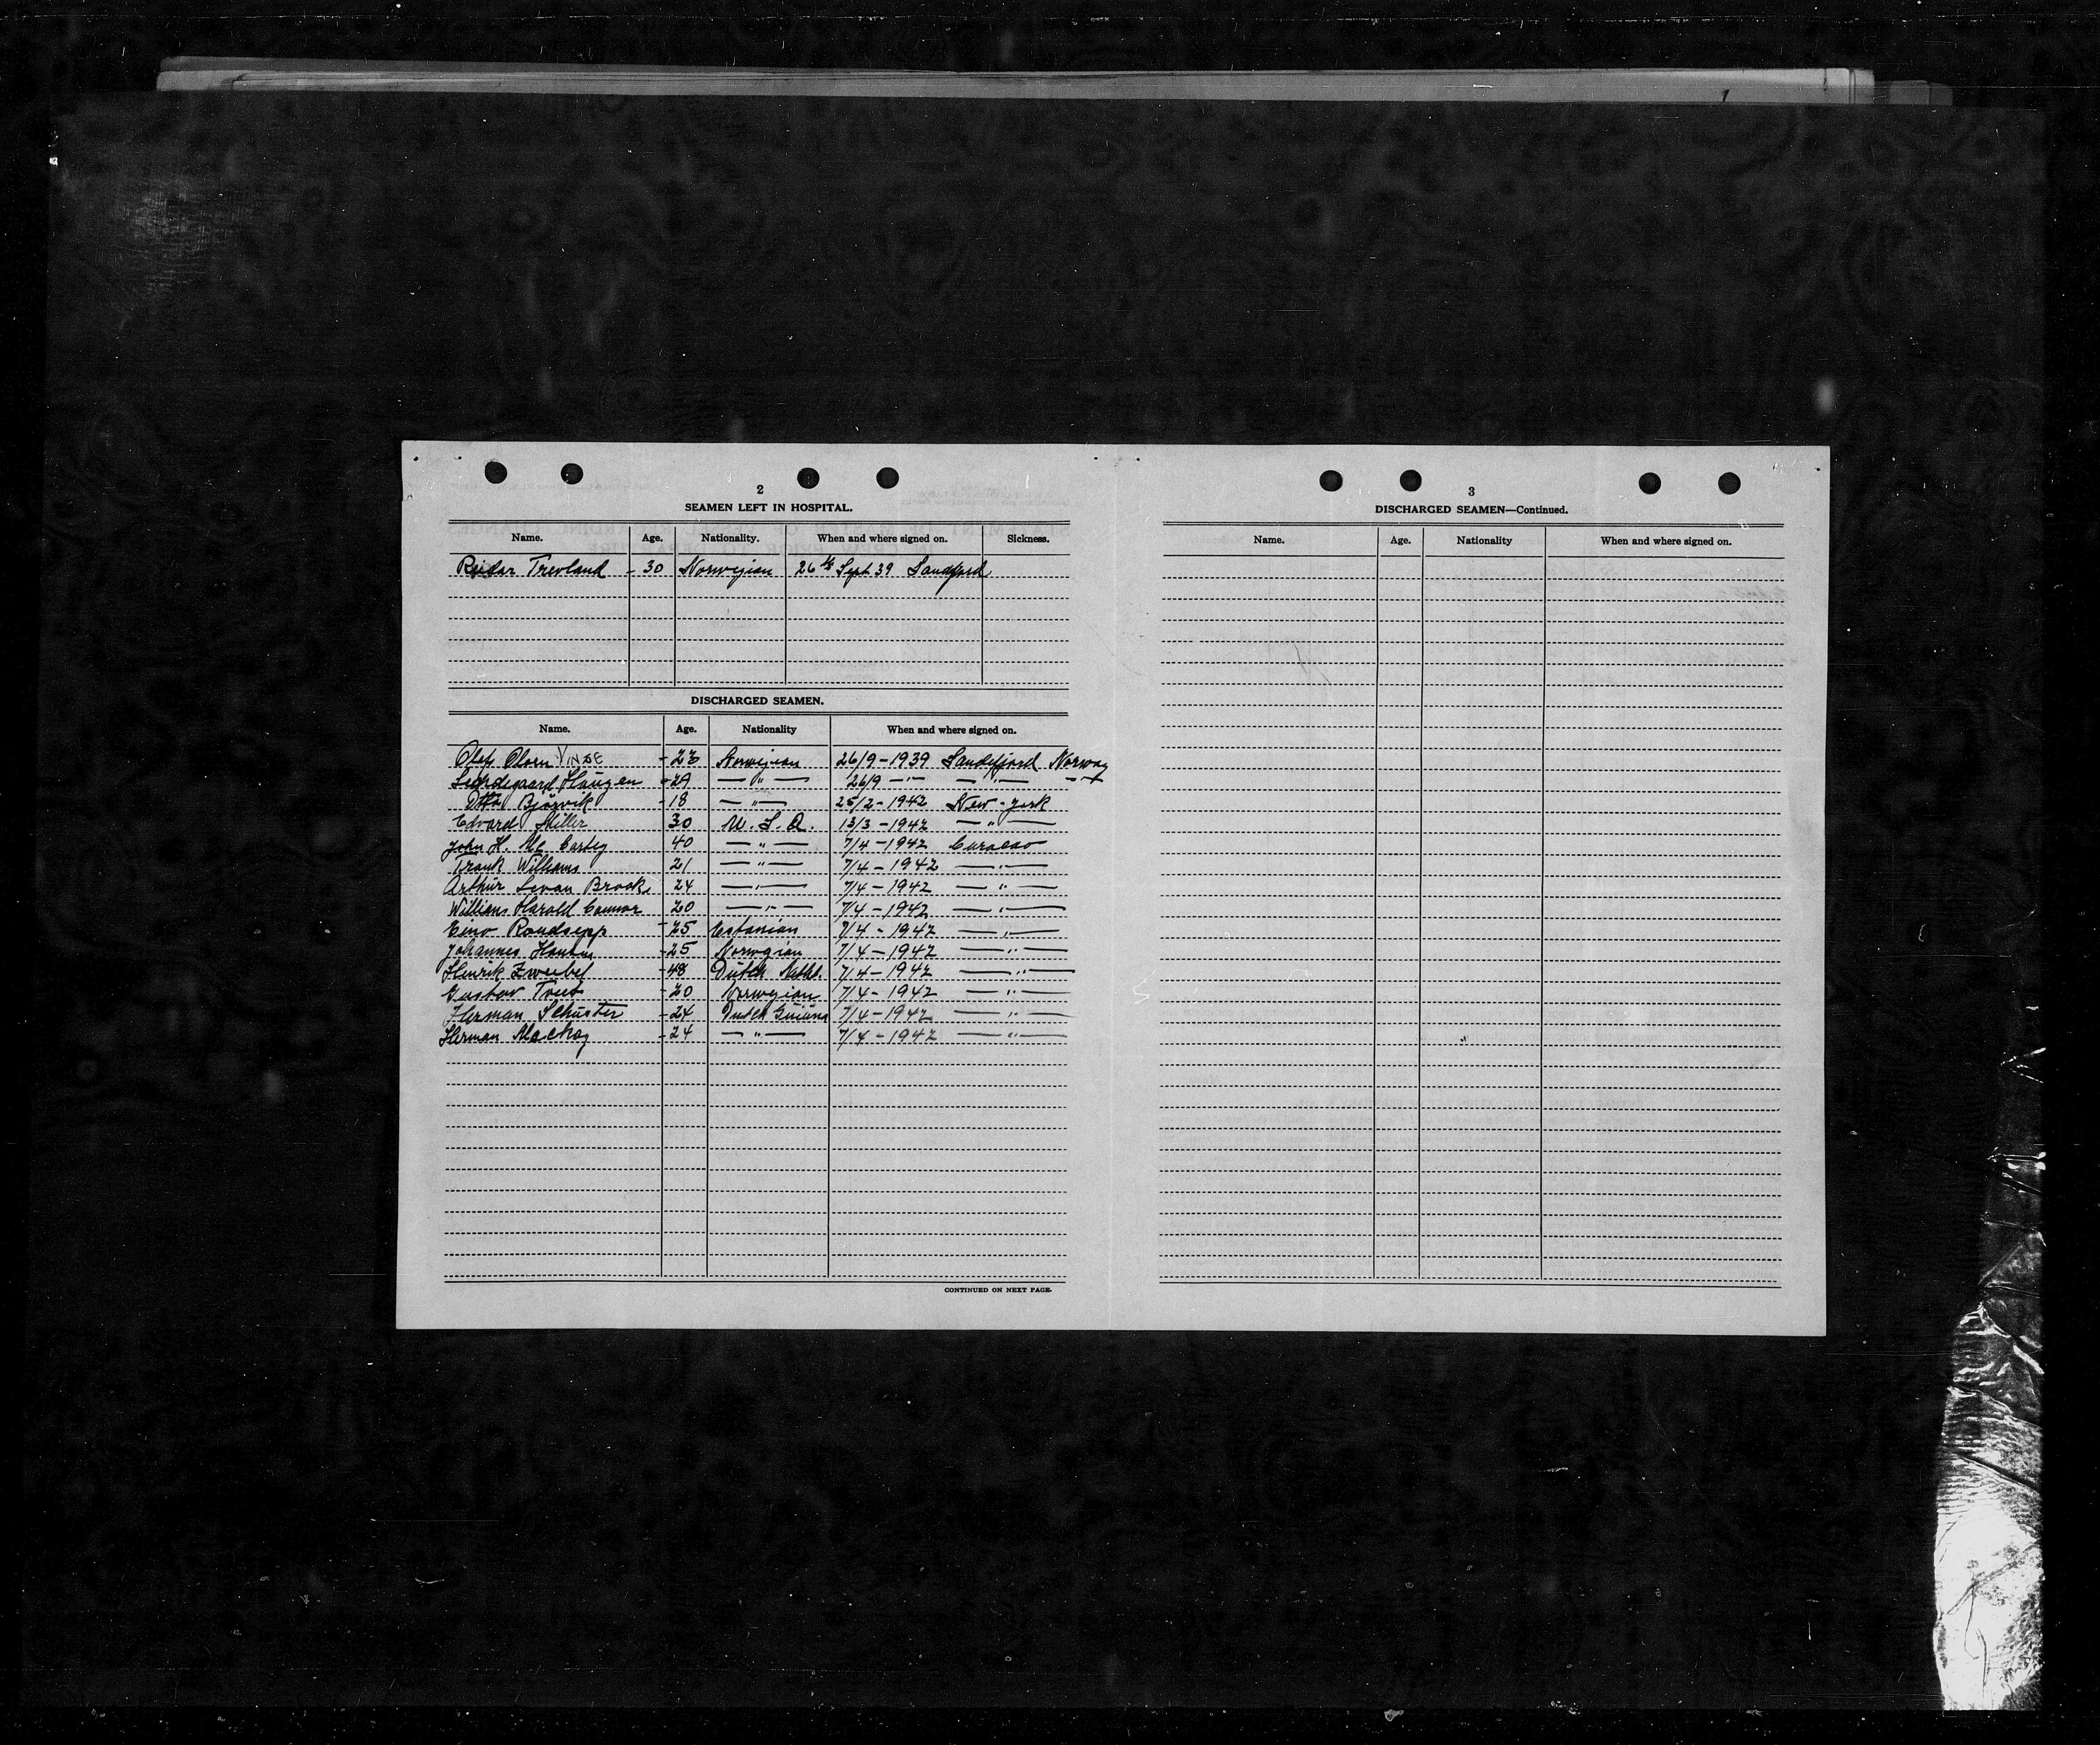 2
SEAMEN LEFT IN HOSPITAL.
Name. Age. Nationality. When and where signed on. Sickness.
Reidar Trevland - 30 Norwegian 26th Sept 39 Sandfjord
DISCHARGED SEAMEN.
Name. Age. Nationality When and where signed on.
Olaf Olsen VINJE - 23 Norwegian 26/9-1939 Sandefjord Norway
Haugen - 29 —"— 26/9 —"— —"— —"—
Otto Björvik - 18 —"— 25/2-1942 New-york
Edvard Miller 30 U.S.A. 13/3-1942 —"—
John H. Mc Carty 40 —"— 7/4-1942 Curacao
Frank Williams 21 —"— 7/4-1942 —"—
Arthur Brooks 24 —"— 7/4-1942 —"—
Williams Harold Connor 20 —"— 7/4-1942 —"—
Eino Roudsepp - 25 Estonian 7/4-1942 —"—
Johannes Hansen - 25 Norwegian 7/4-1942 —"—
Henrik Zweibel - 48 Dutch 7/4-1942 —"—
Gustav - 20 Norwegian 7/4-1942 —"—
Herman Schuster - 24 Dutch Guiana 7/4-1942 —"—
Herman Mackay - 24 —"— 7/4-1942 —"—
CONTINUED ON NEXT PAGE.
3
DISCHARGED SEAMEN—Continued.
Name. Age. Nationality When and where signed on.